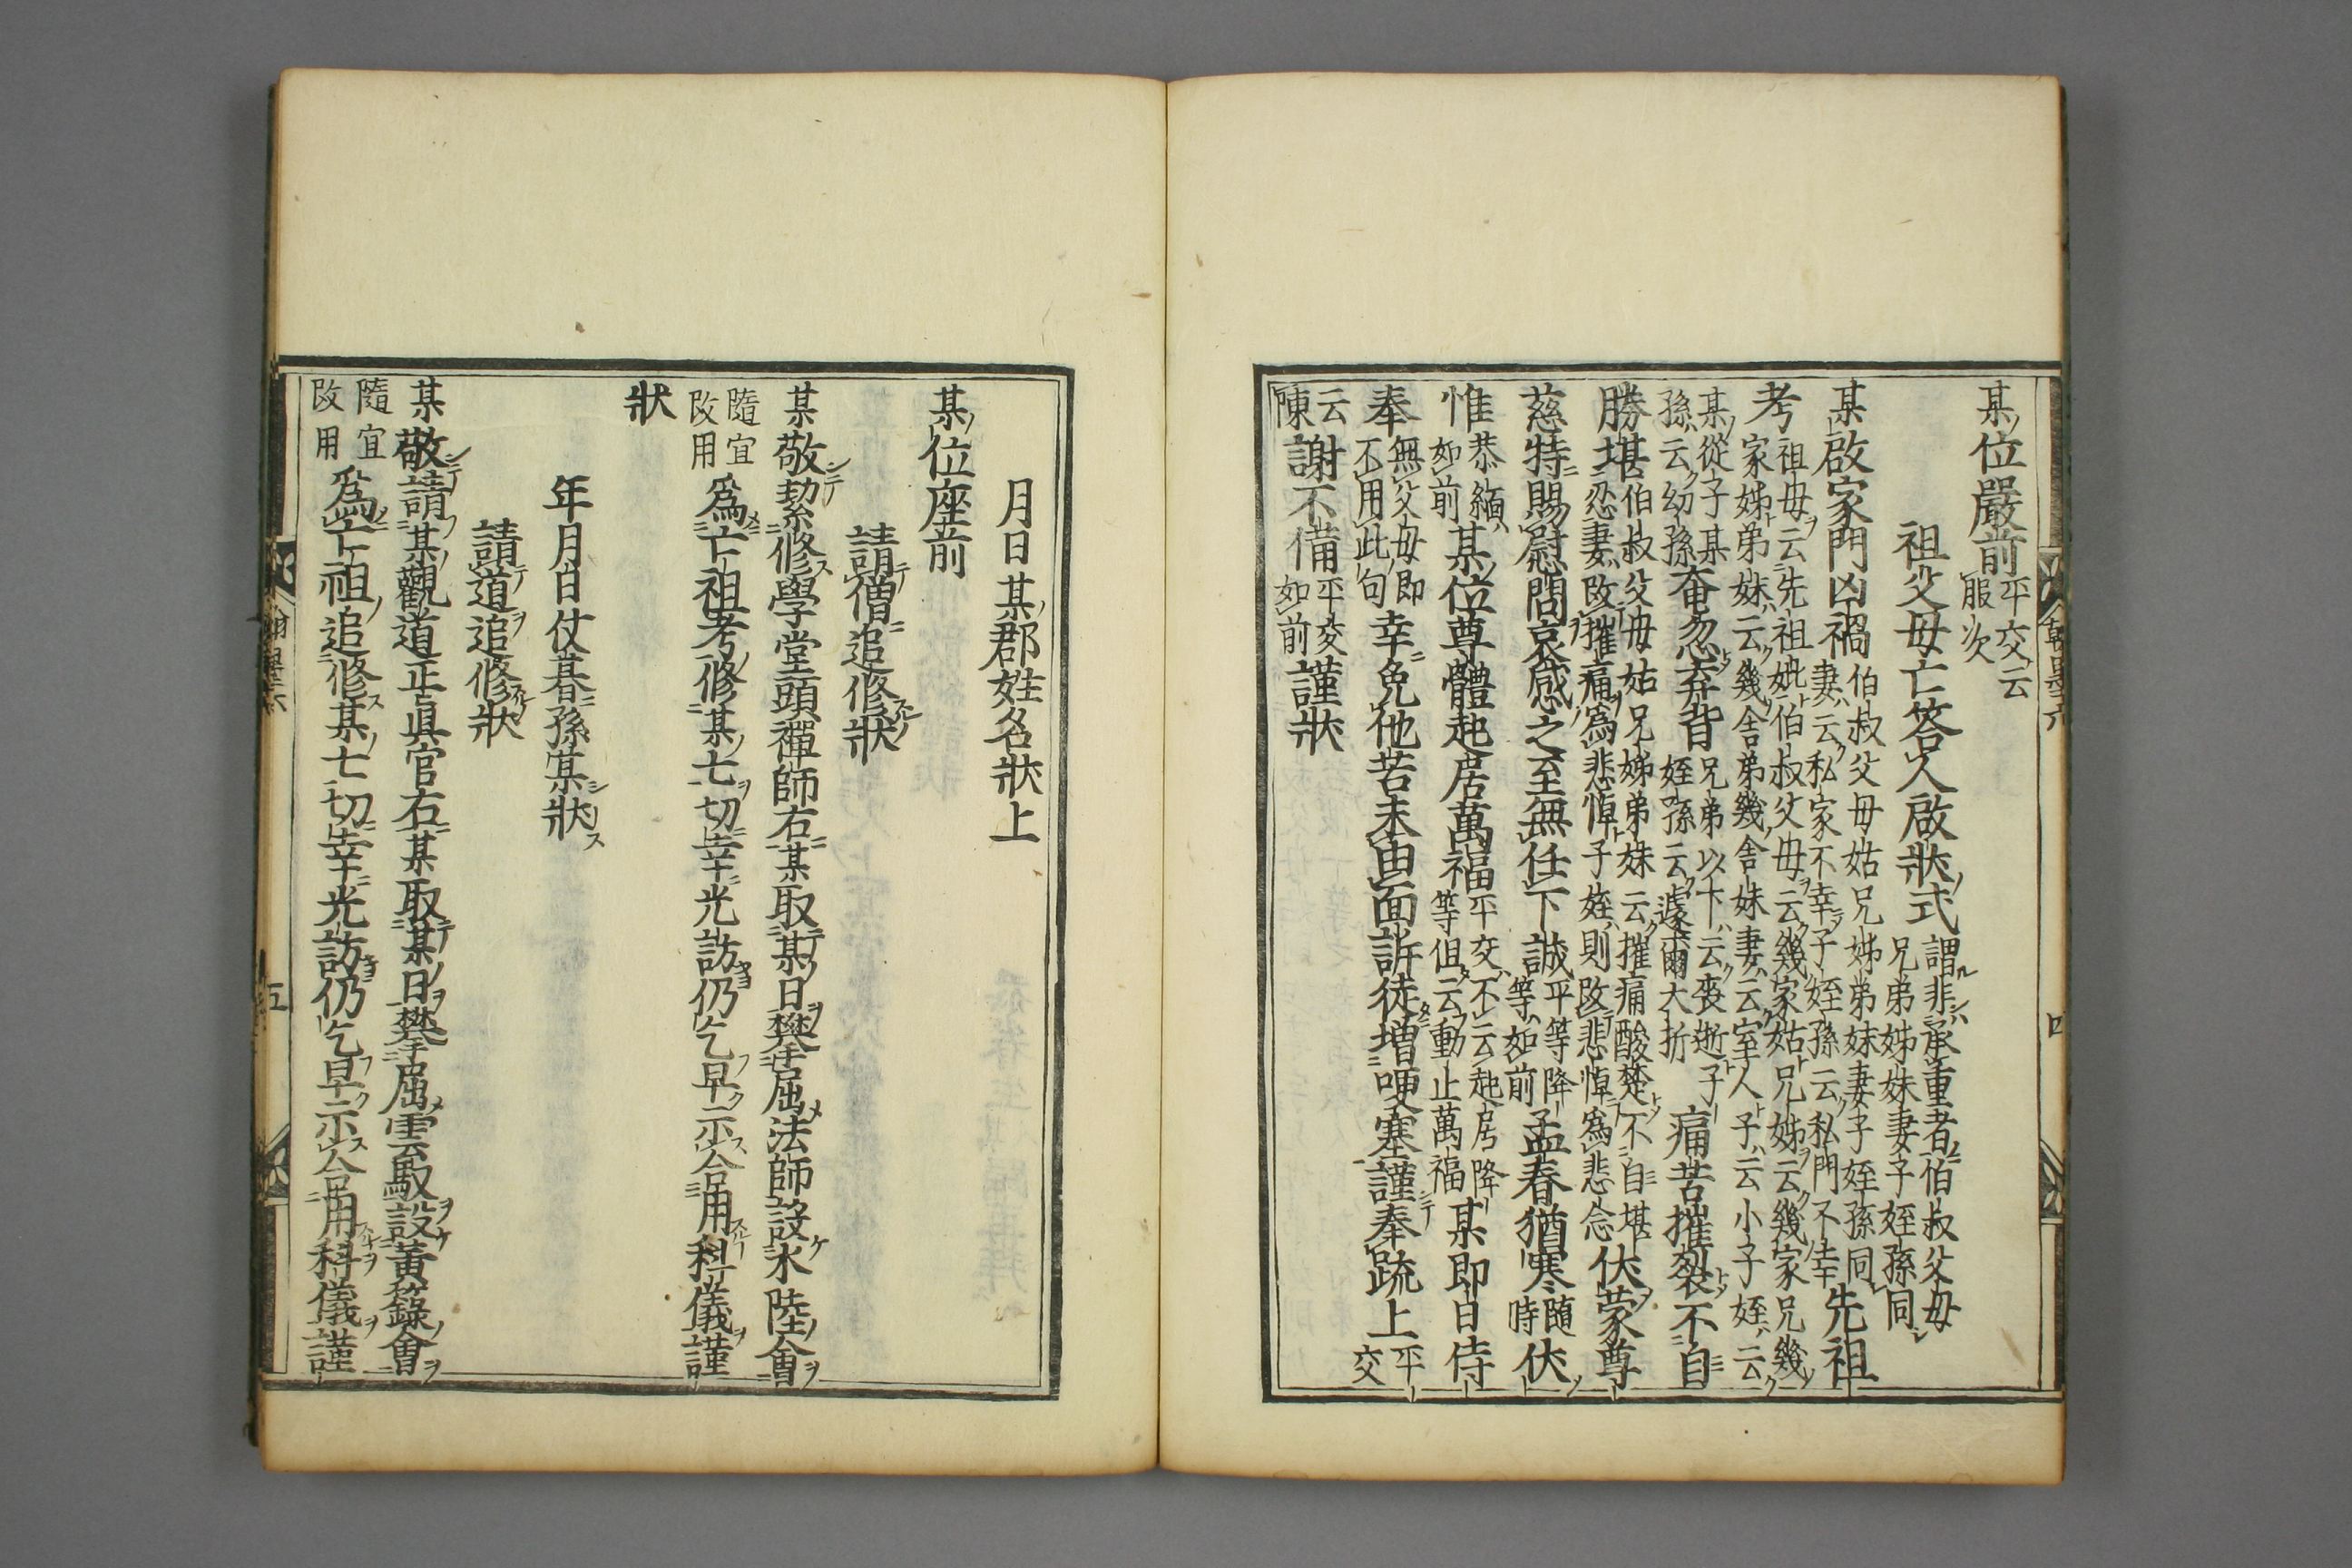 某位嚴前平交云服次
祖父母亡答人啟狀式謂非承重者伯叔父母兄弟姊妹妻子姪孫同
某啟家門凶禍伯叔父母姑兄姊弟妹妻子姪孫同妻云私家不幸子姪孫云私門不幸先祖
考祖母云先祖妣伯叔父母云幾家姑兄姊云幾家兄幾家姊弟妹云幾舍弟幾舍妹妻云室人子云小子姪云
某從子某孫云幼孫奄忽弃背兄弟以下云喪逝子姪孫云遽爾大折痛苦摧裂不自
勝堪伯叔父母姑兄姊弟妹云摧痛酸楚不自堪忍妻改摧痛爲悲悼子姪則改悲悼爲悲念伏蒙尊
慈特賜慰問哀感之至無任下誠平等降等如前孟春猶寒隨時伏
惟恭緬如前某位尊體起居萬福平交不云起居降等但云動止萬福某即日侍
奉無父母即不用此句幸免他苦未由面訴徒增哽塞謹奉疏上平交
云陳謝不備平交如前謹狀
四
月日某郡姓名狀上
某位座前
請僧追修狀
某敬絜修學堂頭禪師右某取某日樊屈法師設水陸會
隨宜改用爲亡祖考修某七切幸光訪仍乞早示合用科儀謹
狀
年月日仗朞孫某狀
請道追修狀
某敬請某觀道正眞官右某取某日樊屈雲馭設黃籙會
隨宜改用爲亡祖追修某七切幸光訪仍乞早示合用科儀謹
五